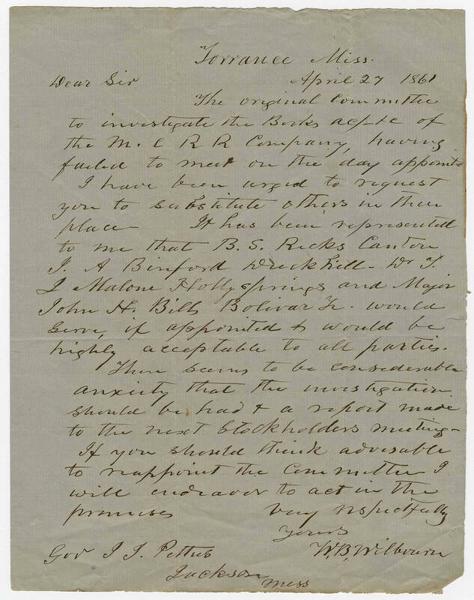 Torrance Miss.
Dear Sir April 27 1861
The original Committee
to investigate the Books &c of
the M. C R R Company, having
failed to meet on the day appointed
I have been urged to request
you to substitute others in their
place It has been represented
to me that B. S. Ricks Canton
J. A Binford Duck Hill. Dr T.
L Malone Holly springs and Major
John H. Bills Bolivar Te. would
serve, if appointed & would be
highly acceptable to all parties.
There seems to be considerable
anxiety that the investigation
should be had & a report made
to the next Stockholders meeting
If you should think advisable
to reappoint the Committee I
will endeavor to act in the
premises Very respectfully
Yours
Gov J J. Pettus W. B. Wilbourn
Jackson
Miss